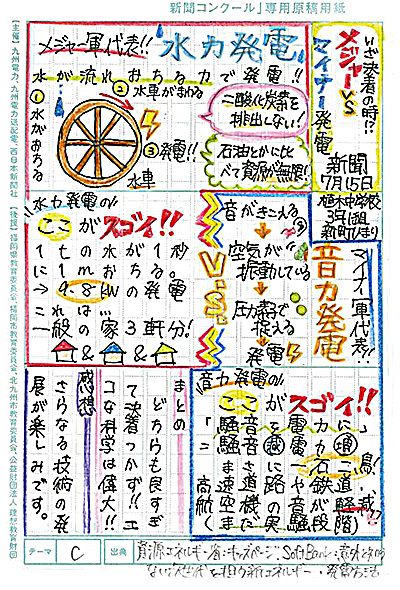 新聞コンクール」専用原稿用紙
【主催】九州電力、九州電力送配電、西日本新聞社
【後援】福岡県教育委員会、福岡市教育委員会、北九州市教育委員会、公益財団法人理想教育財団
いざ決着の時!?
メジャーVS
マイナー発電
新聞
7月15日
3年1組
メジャー軍代表!!
水力発電
水が流れおちる力で発電!!
①水がおちる
②水車がまわる
③発電!!
水車
二酸化炭素を
排出しない!
石油とかに比
べて資源が無限!!
水力発電の
ここがスゴイ!!
1tの水が1秒
に1mおちる。
→9.8kWの発電
これは
一般の家3軒分!
&
&
V.S.
マイナー軍代表!!
音力発電
音がきこえる
空気が
振動している
圧力素子で
捉える
発電
音力発電の
ここがスゴイ!!
まとめ
どちらも良すぎ
て決着つかず!!エ
コな科学は偉大!!
感想
さらなる技術の発
展が楽しみです。
テーマ
C
出典
資源エネルギー庁キッズページ、SoftBank